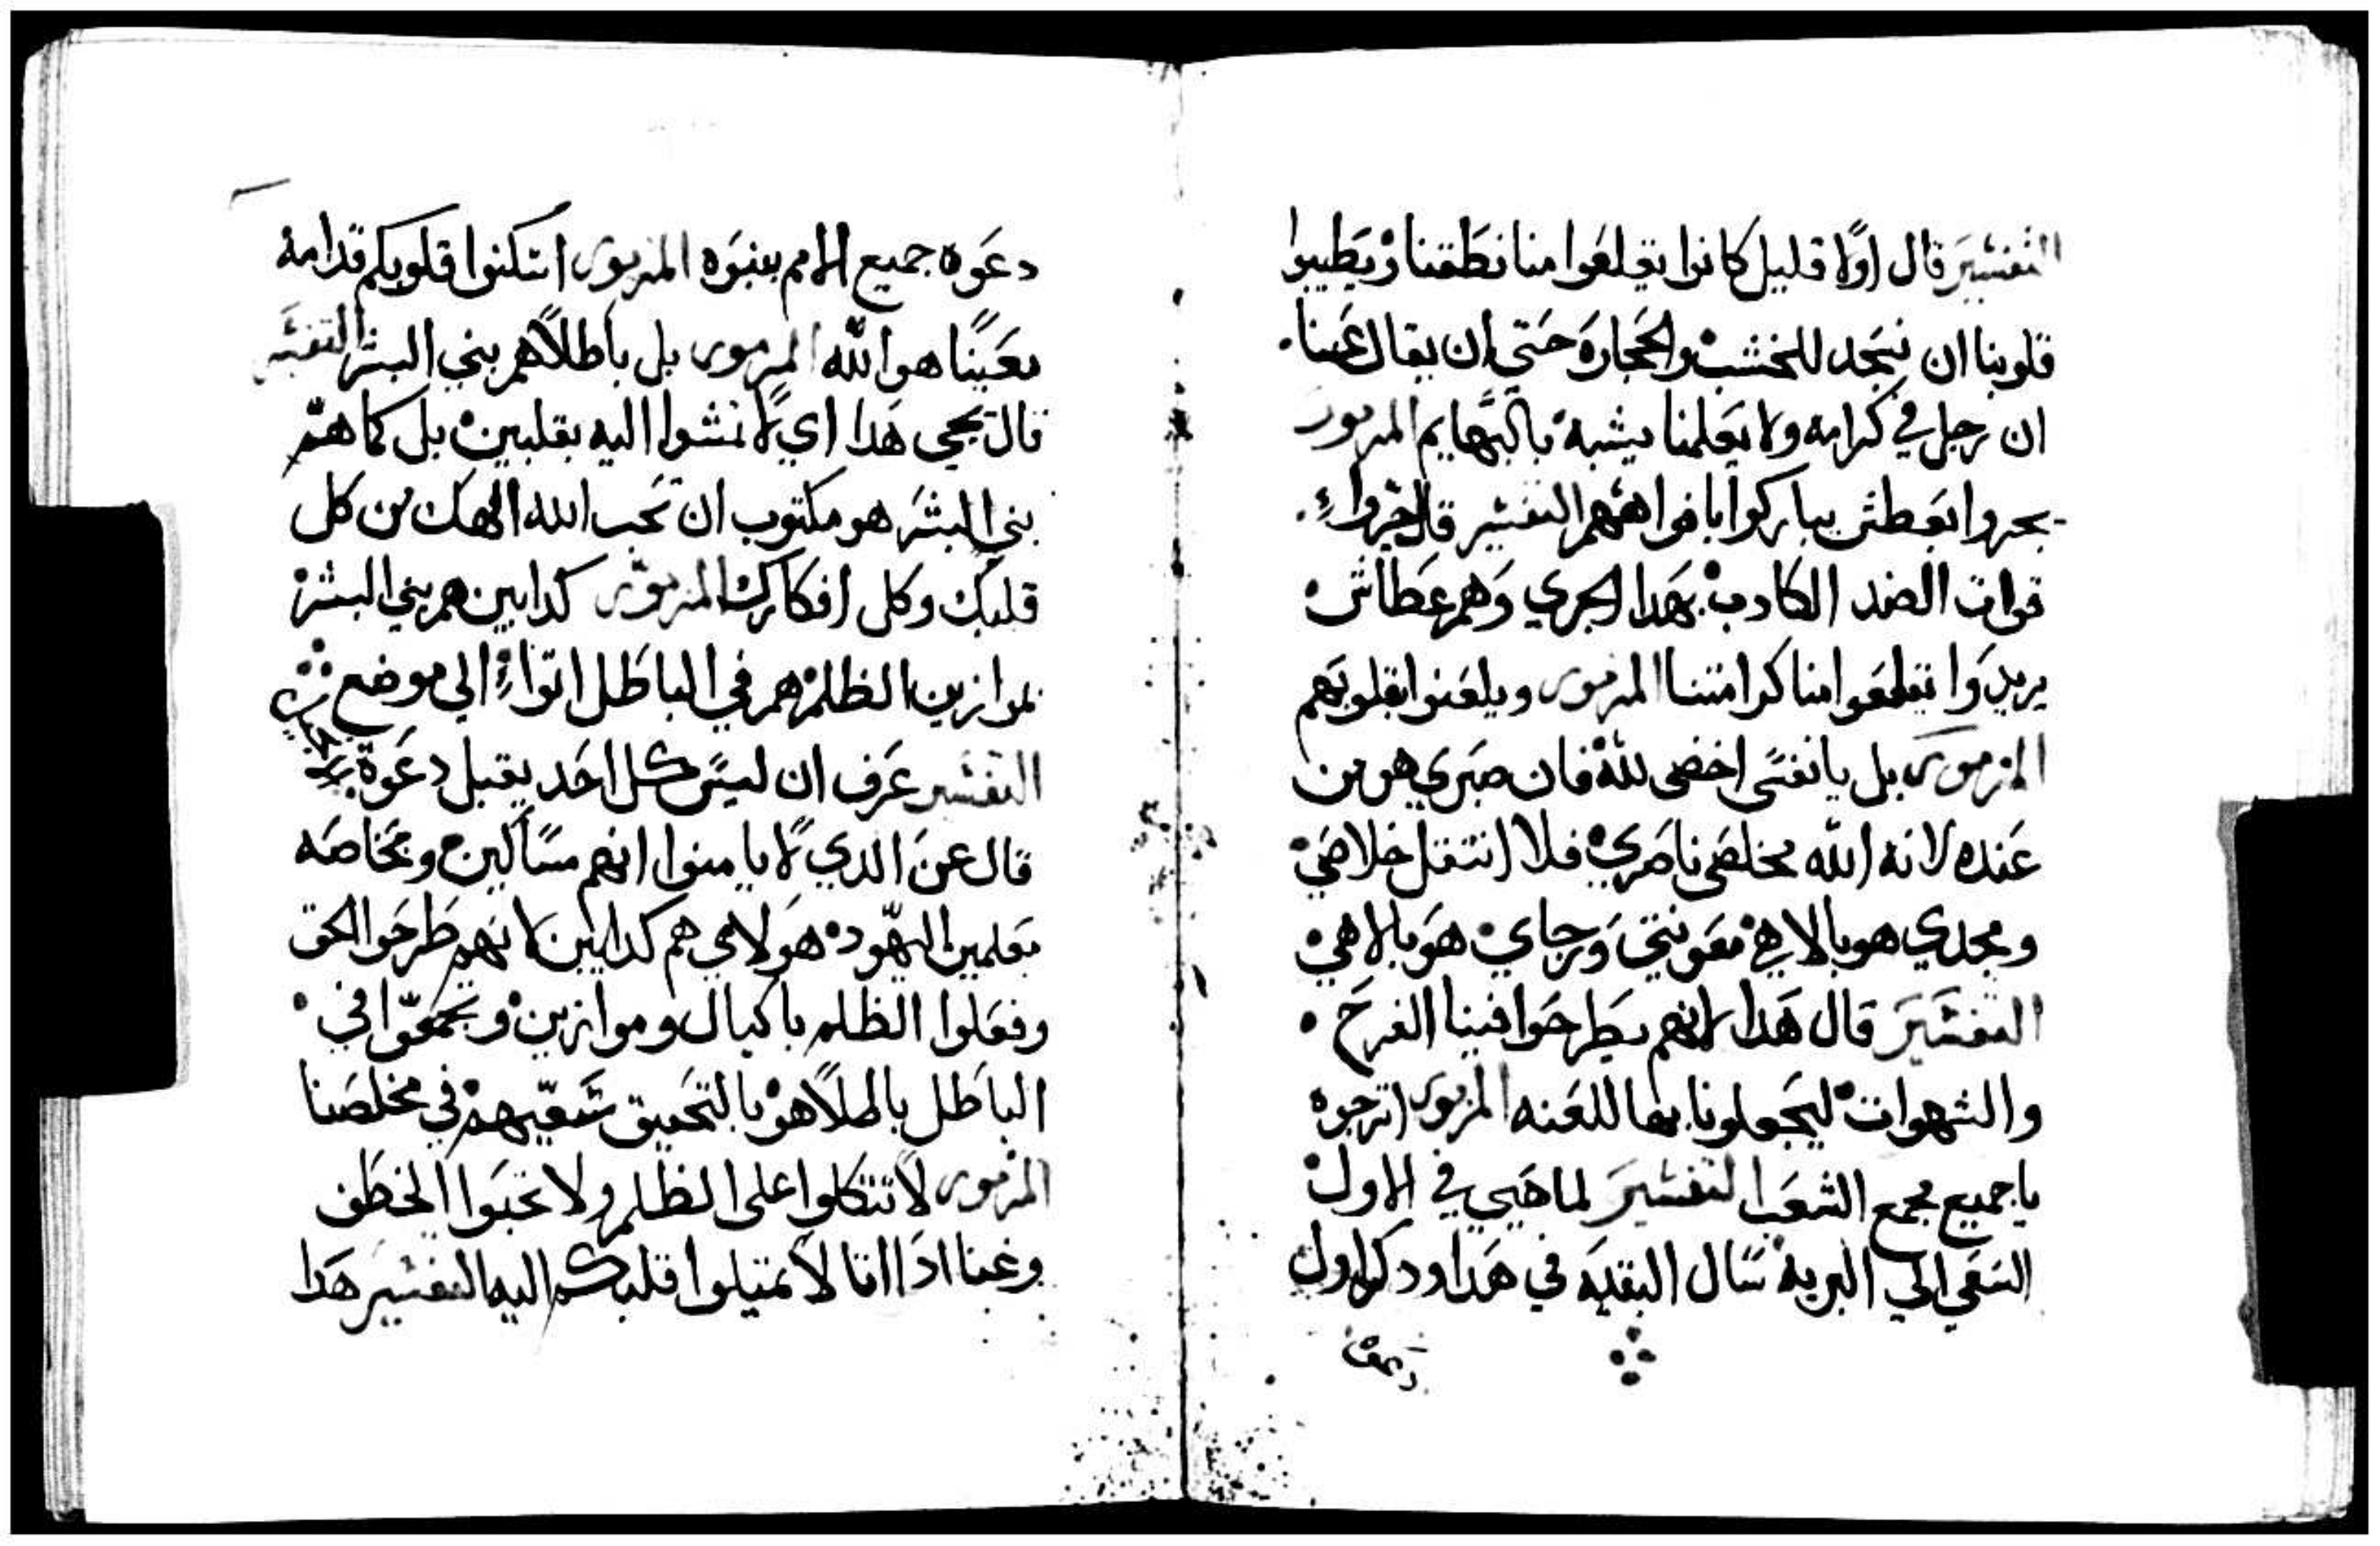 التفسير قال اولا قليل كانوا يقلعوا منا نطقنا ويطيبوا
قلوبنا ان نسجد للخشب والحجارة حتي ان يقال عنا
ان رجل في كرامه ولا يعلمنا يشبه بالبهايم المزمور
بحروا بعطش يباركوا بافواههم التفسير قال جروا
قوات الضد الكادب بهدا الجري وهم عطاش
يريدوا يقلعوا منا كرامتنا المزمور ويلعنوا بقلوبهم
المزمور بل يا نفسي اخضعي لله فان صبري هو من
عنده لانه الله مخلصي ناصري فلا انتقل خلاصي
ومجدي هو بالاهي معونتي ورجاي هو بالاهي
التفسير قال هدا لانهم يطرحوا فينا الفرح
والشهوات ليجعلونا بها للعنه المزمور اترجوه
يا جميع مجمع الشعب التفسير لما هيي في الاول
السعي الي البرية سال البقيه في هدا ودكر اول
دعوه جميع الامم بينبوه المزمور اسكنوا قلوبكم قدامه
معينا هو الله المزمور بل باطلا هم بني البشر التفسير
قال يحيي هدا اي لا تمشوا اليه بقلبين بل كما هم
بني البشر هو مكتوب ان تحب الله الاهك من كل
قلبك وكل افكارك المزمور كدابين هم بني البشر
موازين الظلم هم في الباطل اتوا الي موضع
التفسير عرف ان ليس كل احد يقبل دعوة
قال عن الدي لا يامنوا انهم مسالين وبخاصه
معلمين اليهود هولاي هم كدابين لانهم طرحوا الحق
وفعلوا الظلم باكيال وموازين وتجمعوا في
الباطل بالملا هو بالتحقيق شعبهم في مخلصنا
المزمور لا تتكلوا علي الظلم ولا تحبوا الخطف
وغنا ادا اتا لا تميلوا قلبكم اليه التفسير هدا